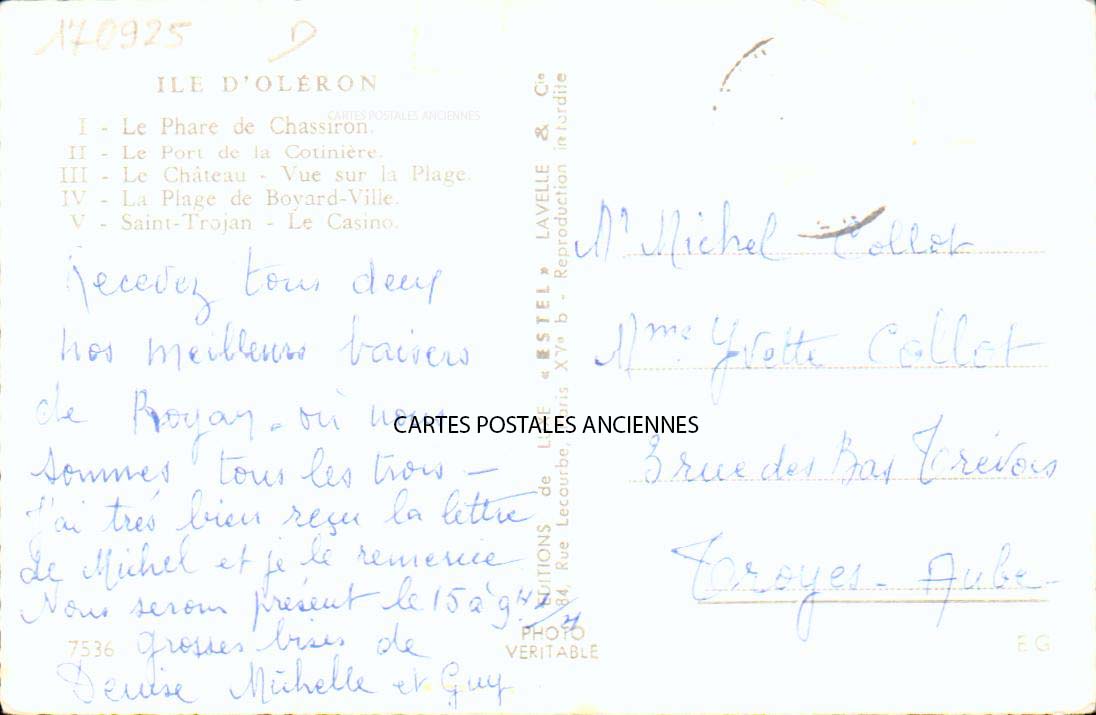 170925 D
ILE D'OLÉRON
CARTES POSTALES ANCIENNES
I - Le Phare de Chassiron.
II - Le Port de la Cotinière.
III - Le Château - Vue sur la Plage.
IV - La Plage de Boyard-Ville.
V - Saint-Trojan - Le Casino.
Recevez tous deux
nos meilleurs baisers
de Royan - où nous
sommes tous les trois -
J'ai très bien reçu la lettre
de Michel et je le remercie
Nous serons présent le 15 à 9H
grosses bises de
Denise Michelle et Guy
7536
CARTES POSTALES ANCIENNES
EDITIONS de LUXE « ESTEL » LAVELLE & Cie
84, Rue Lecourbe, Paris XVe b - Reproduction interdite
PHOTO
VERITABLE
Mr Michel Collot
Mme Yvette Collot
3 rue des Bas Trévois
Troyes - Aube -
E G